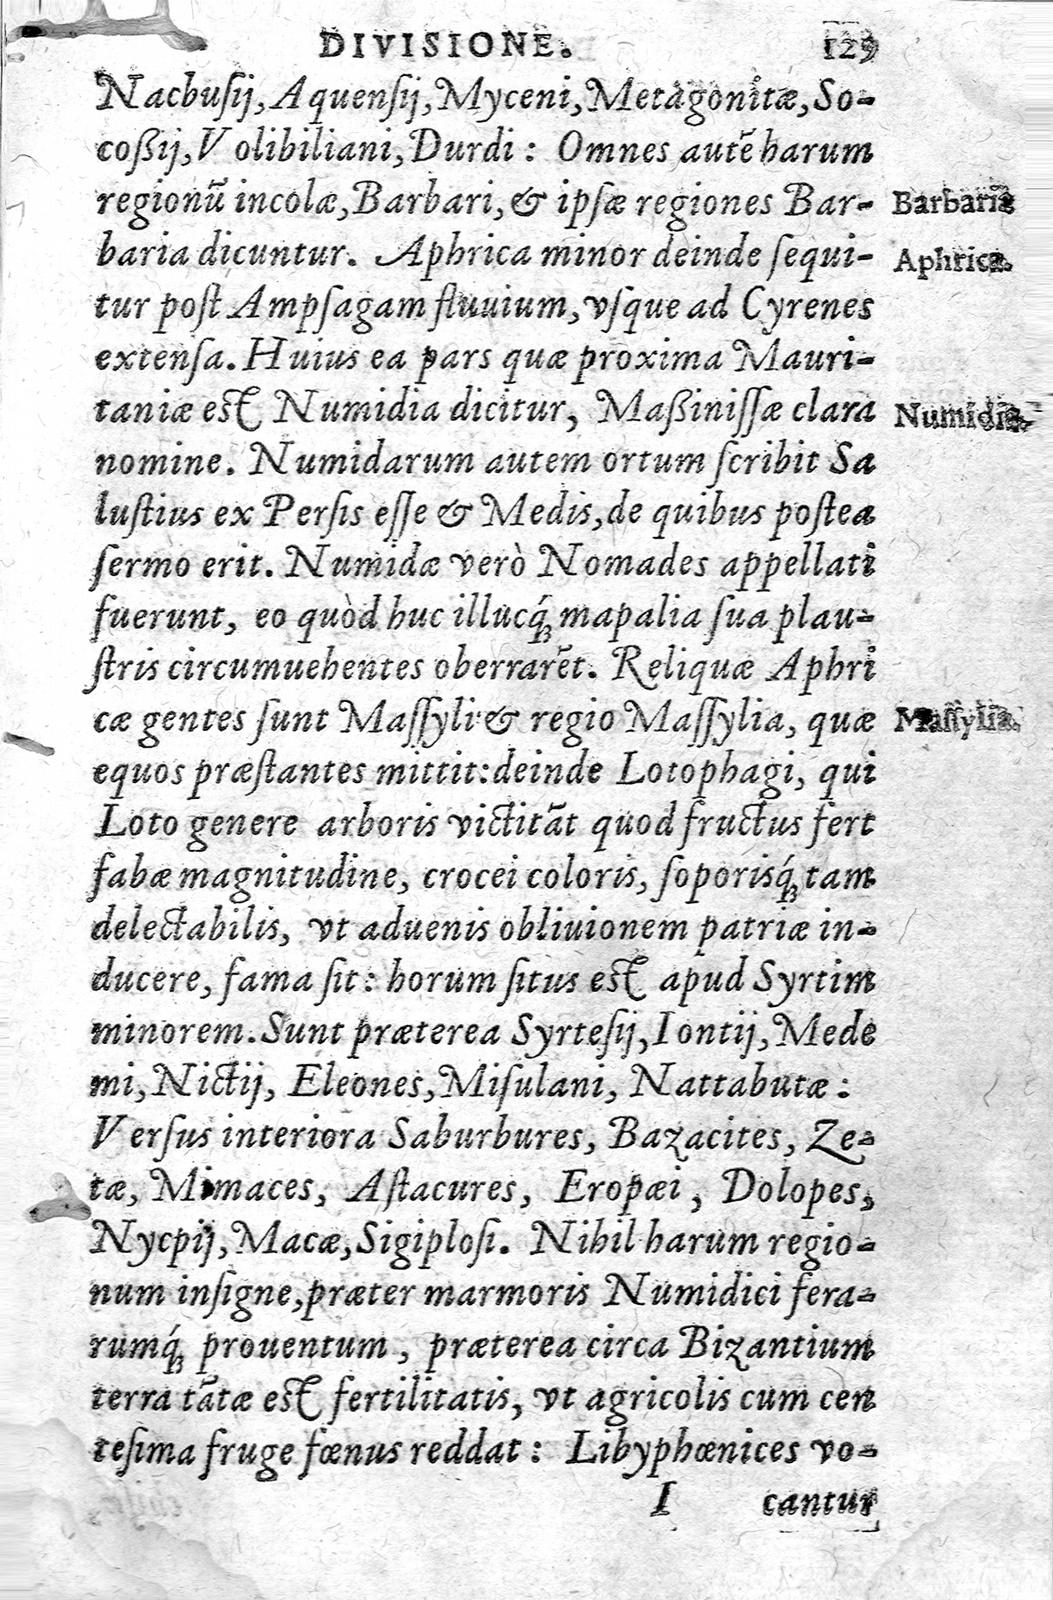 DIVISIONE. 129
Nacbuſij, Aquenſij, Myceni, Metagonitæ, So-
coßij, Volibiliani, Durdi: Omnes autẽ harum
regionũ incolæ, Barbari, & ipſæ regiones Bar- Barbariæ
baria dicuntur. Aphrica minor deinde ſequi- Aphrica.
tur poſt Ampſagam fluuium, vſque ad Cyrenes
extenſa. Huius ea pars quæ proxima Mauri-
taniæ est Numidia dicitur, Maßiniſſæ clara Numidia.
nomine. Numidarum autem ortum ſcribit Sa
luſtius ex Perſis eſſe & Medis, de quibus poſtea
ſermo erit. Numidæ verò Nomades appellati
fuerunt, eo quòd huc illucq́; mapalia ſua plau-
ſtris circumuehentes oberrarẽt. Reliquæ Aphri
cæ gentes ſunt Maſſyli & regio Maſſylia, quæ Maſſylia.
equos præſtantes mittit: deinde Lotophagi, qui
Loto genere arboris victitãt quod fructus fert
fabæ magnitudine, crocei coloris, ſoporisq́; tam
delectabilis, vt aduenis obliuionem patriæ in-
ducere, fama ſit: horum ſitus est apud Syrtim
minorem. Sunt præterea Syrteſij, Iontij, Mede
mi, Nictij, Eleones, Miſulani, Nattabutæ:
Verſus interiora Saburbures, Bazacites, Ze-
tæ, Mimaces, Aſtacures, Eropæi, Dolopes,
Nycpij, Macæ, Sigiploſi. Nihil harum regio-
num inſigne, præter marmoris Numidici fera-
rumq́; prouentum, præterea circa Bizantium
terra tãtæ est fertilitatis, vt agricolis cum cen
teſima fruge fœnus reddat: Libyphœnices vo-
I cantur